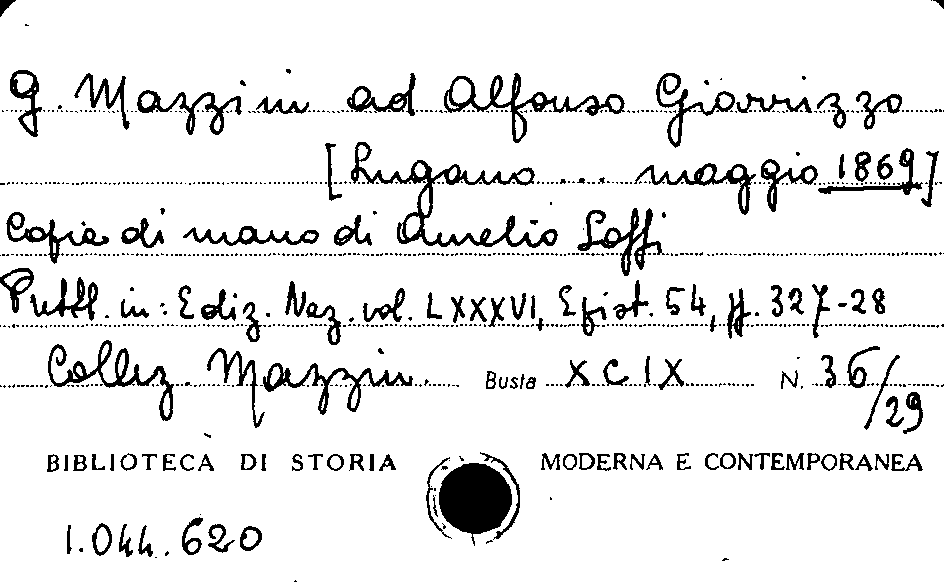 G. Mazzini ad Alfonso Giarrizzo
[Lugano ... maggio 1869]
Copia di mano di Aurelio Saffi
Pubbl. in: Ediz. Naz. vol. LXXXVI, Epist. 54, pp. 327-28
Collez. Mazzini. Busta XCIX N. 36/29
BIBLIOTECA DI STORIA MODERNA E CONTEMPORANEA
1.044.620